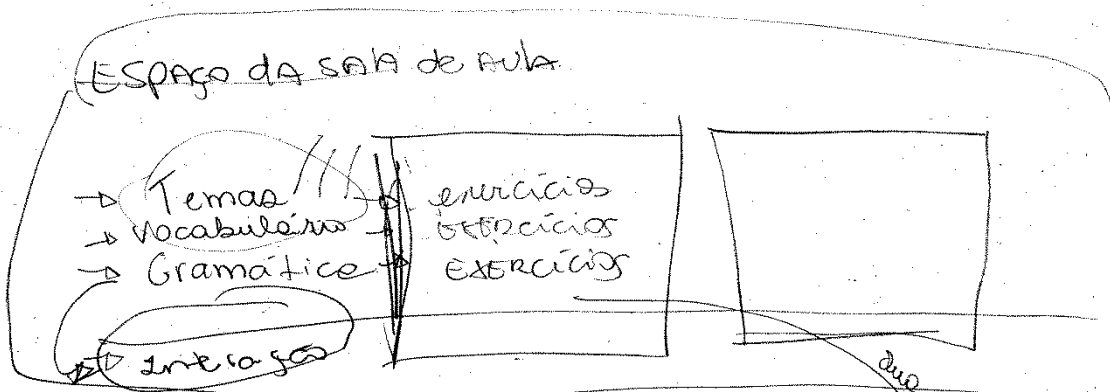 ESPAÇO dA SALA de AULA
→ Temas → exercícios
→ Vocabulário → EXERCÍCIOS
→ Gramática → EXERCÍCIOS
→ Interação